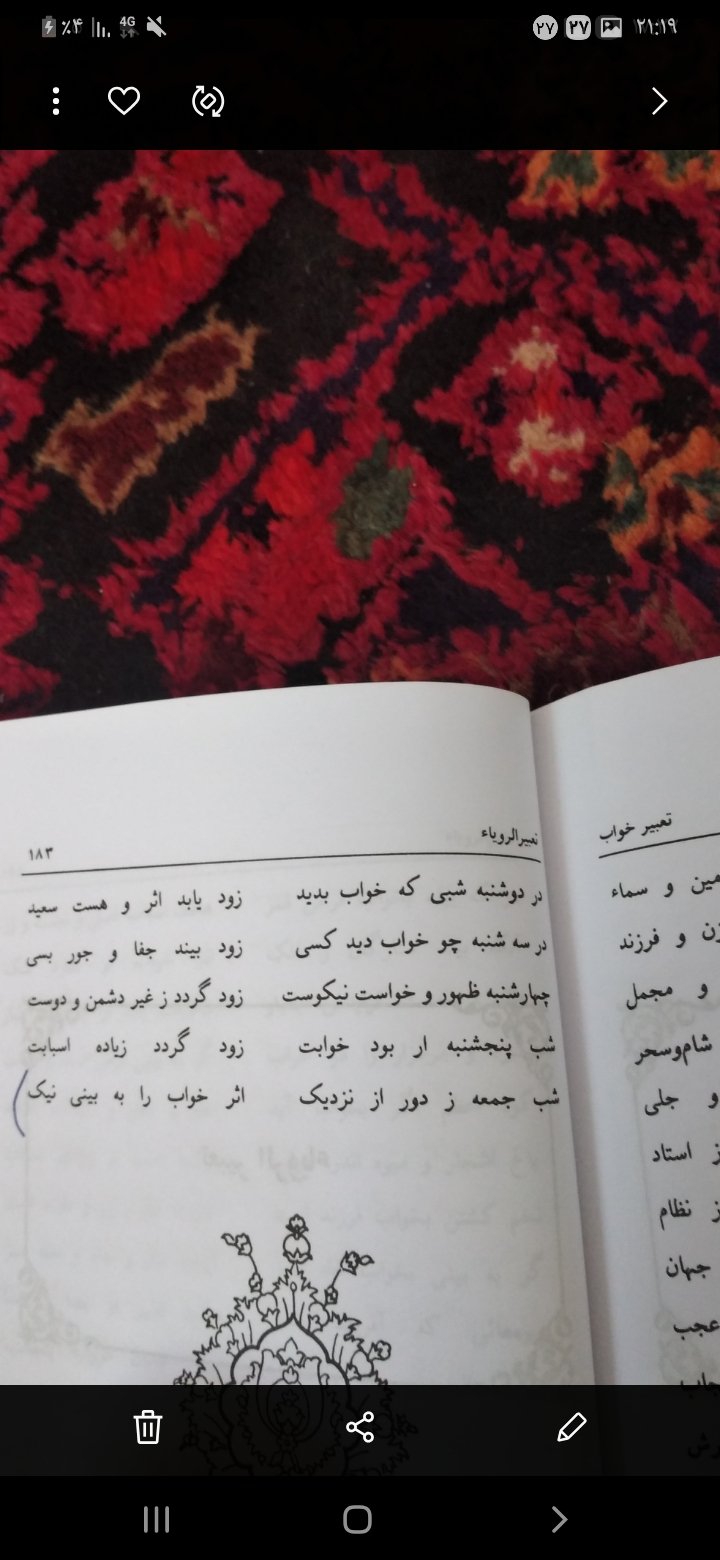 ٪۴ 4G ۲۷ ۲۷ ۲۱:۱۹
تعبیر خواب
تعبیرالرویاء ۱۸۳
در دوشنبه شبی که خواب بدید زود یابد اثر و هست سعید
در سه شنبه چو خواب دید کسی زود بیند جفا و جور بسی
چهارشنبه ظهور و خواست نیکوست زود گردد ز غیر دشمن و دوست
شب پنجشنبه ار بود خوابت زود گردد زیاده اسبابت
شب جمعه ز دور از نزدیک اثر خواب را به بینی نیک
و سماء
و فرزند
و مجمل
شام‌وسحر
و جلی
ز استاد
ز نظام
جهان
عجب